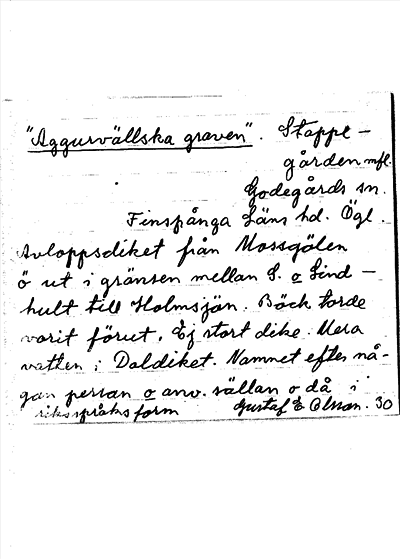 "Aggurvällska graven". Stappe-
gården mfl.
Godegårds sn.
Finspånga Läns hd. Ögl.
Avloppsdiket från Mossgölen
ö ut i gränsen mellan S. o Lind-
hult till Holmsjön. Bäck torde
varit förut. Ej stort dike. Mera
vatten i Daldiket. Namnet efter nå-
gan person o anv. sällan o då i
riksspråksform Gustaf E Olsson. 30